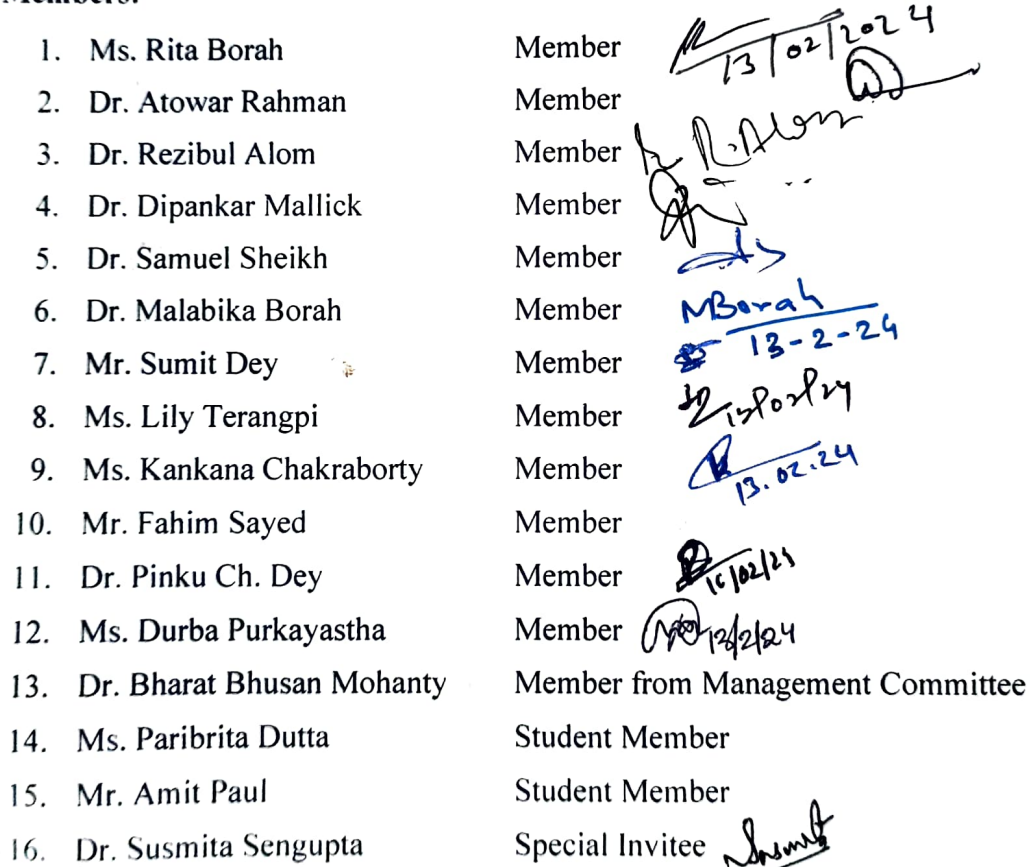 Members:
1. Ms. Rita Borah Member 13/02/2024
2. Dr. Atowar Rahman Member
3. Dr. Rezibul Alom Member R. Alom
4. Dr. Dipankar Mallick Member
5. Dr. Samuel Sheikh Member
6. Dr. Malabika Borah Member MBorah
13-2-24
7. Mr. Sumit Dey Member
8. Ms. Lily Terangpi Member
9. Ms. Kankana Chakraborty Member 13.02.24
10. Mr. Fahim Sayed Member
11. Dr. Pinku Ch. Dey Member
12. Ms. Durba Purkayastha Member 13/2/24
13. Dr. Bharat Bhusan Mohanty Member from Management Committee
14. Ms. Paribrita Dutta Student Member
15. Mr. Amit Paul Student Member
16. Dr. Susmita Sengupta Special Invitee